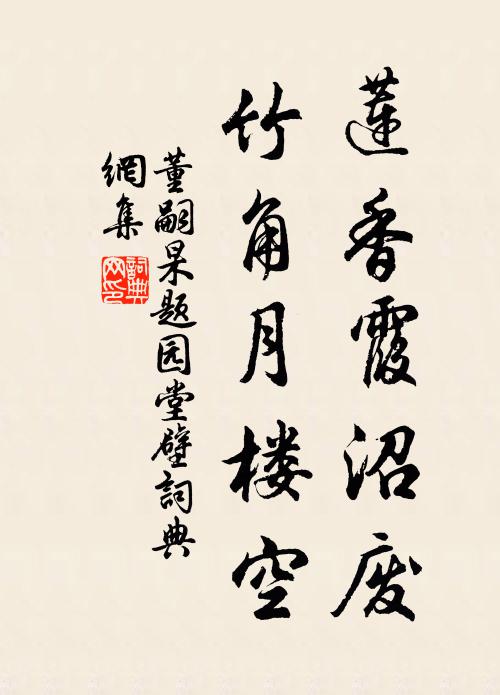 蓮香霞沼废
竹角月楼空
董嗣杲题园堂壁詞典
網集
詞典网印